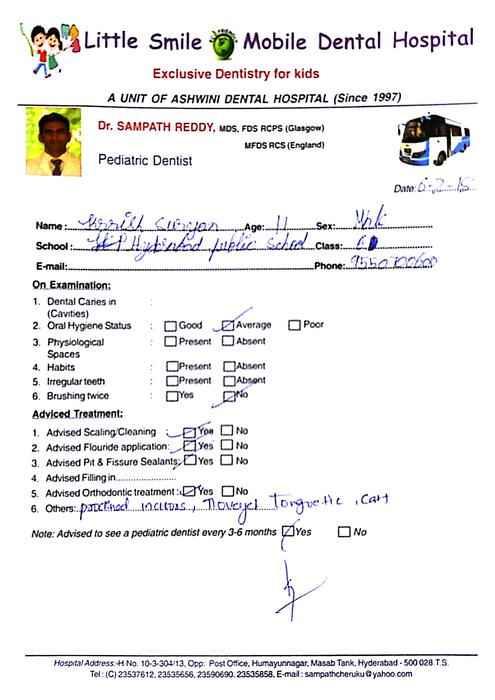 Little Smile Mobile Dental Hospital
Exclusive Dentistry for kids
A UNIT OF ASHWINI DENTAL HOSPITAL (Since 1997)
Dr. SAMPATH REDDY, MDS, FDS RCPS (Glasgow)
MFDS RCS (England)
Pediatric Dentist
Date:
Name: Age: 11 Sex:
School: Hyderabad public School Class: 6
E-mail: Phone:
On Examination:
1. Dental Caries in :
(Cavities)
2. Oral Hygiene Status : Good Average Poor
3. Physiological : Present Absent
Spaces
4. Habits : Present Absent
5. Irregular teeth : Present Absent
6. Brushing twice : Yes No
Adviced Treatment:
1. Advised Scaling/Cleaning : Yes No
2. Advised Flouride application: Yes No
3. Advised Pit & Fissure Sealants: Yes No
4. Advised Filling in
5. Advised Orthodontic treatment: Yes No
6. Others: proclined incisors,
Note: Advised to see a pediatric dentist every 3-6 months Yes No
Hospital Address:-H No. 10-3-304/13, Opp: Post Office, Humayunnagar, Masab Tank, Hyderabad - 500 028.T.S.
Tel : (C) 23537612, 23535656, 23590690. 23535858, E-mail : sampathcheruku@yahoo.com